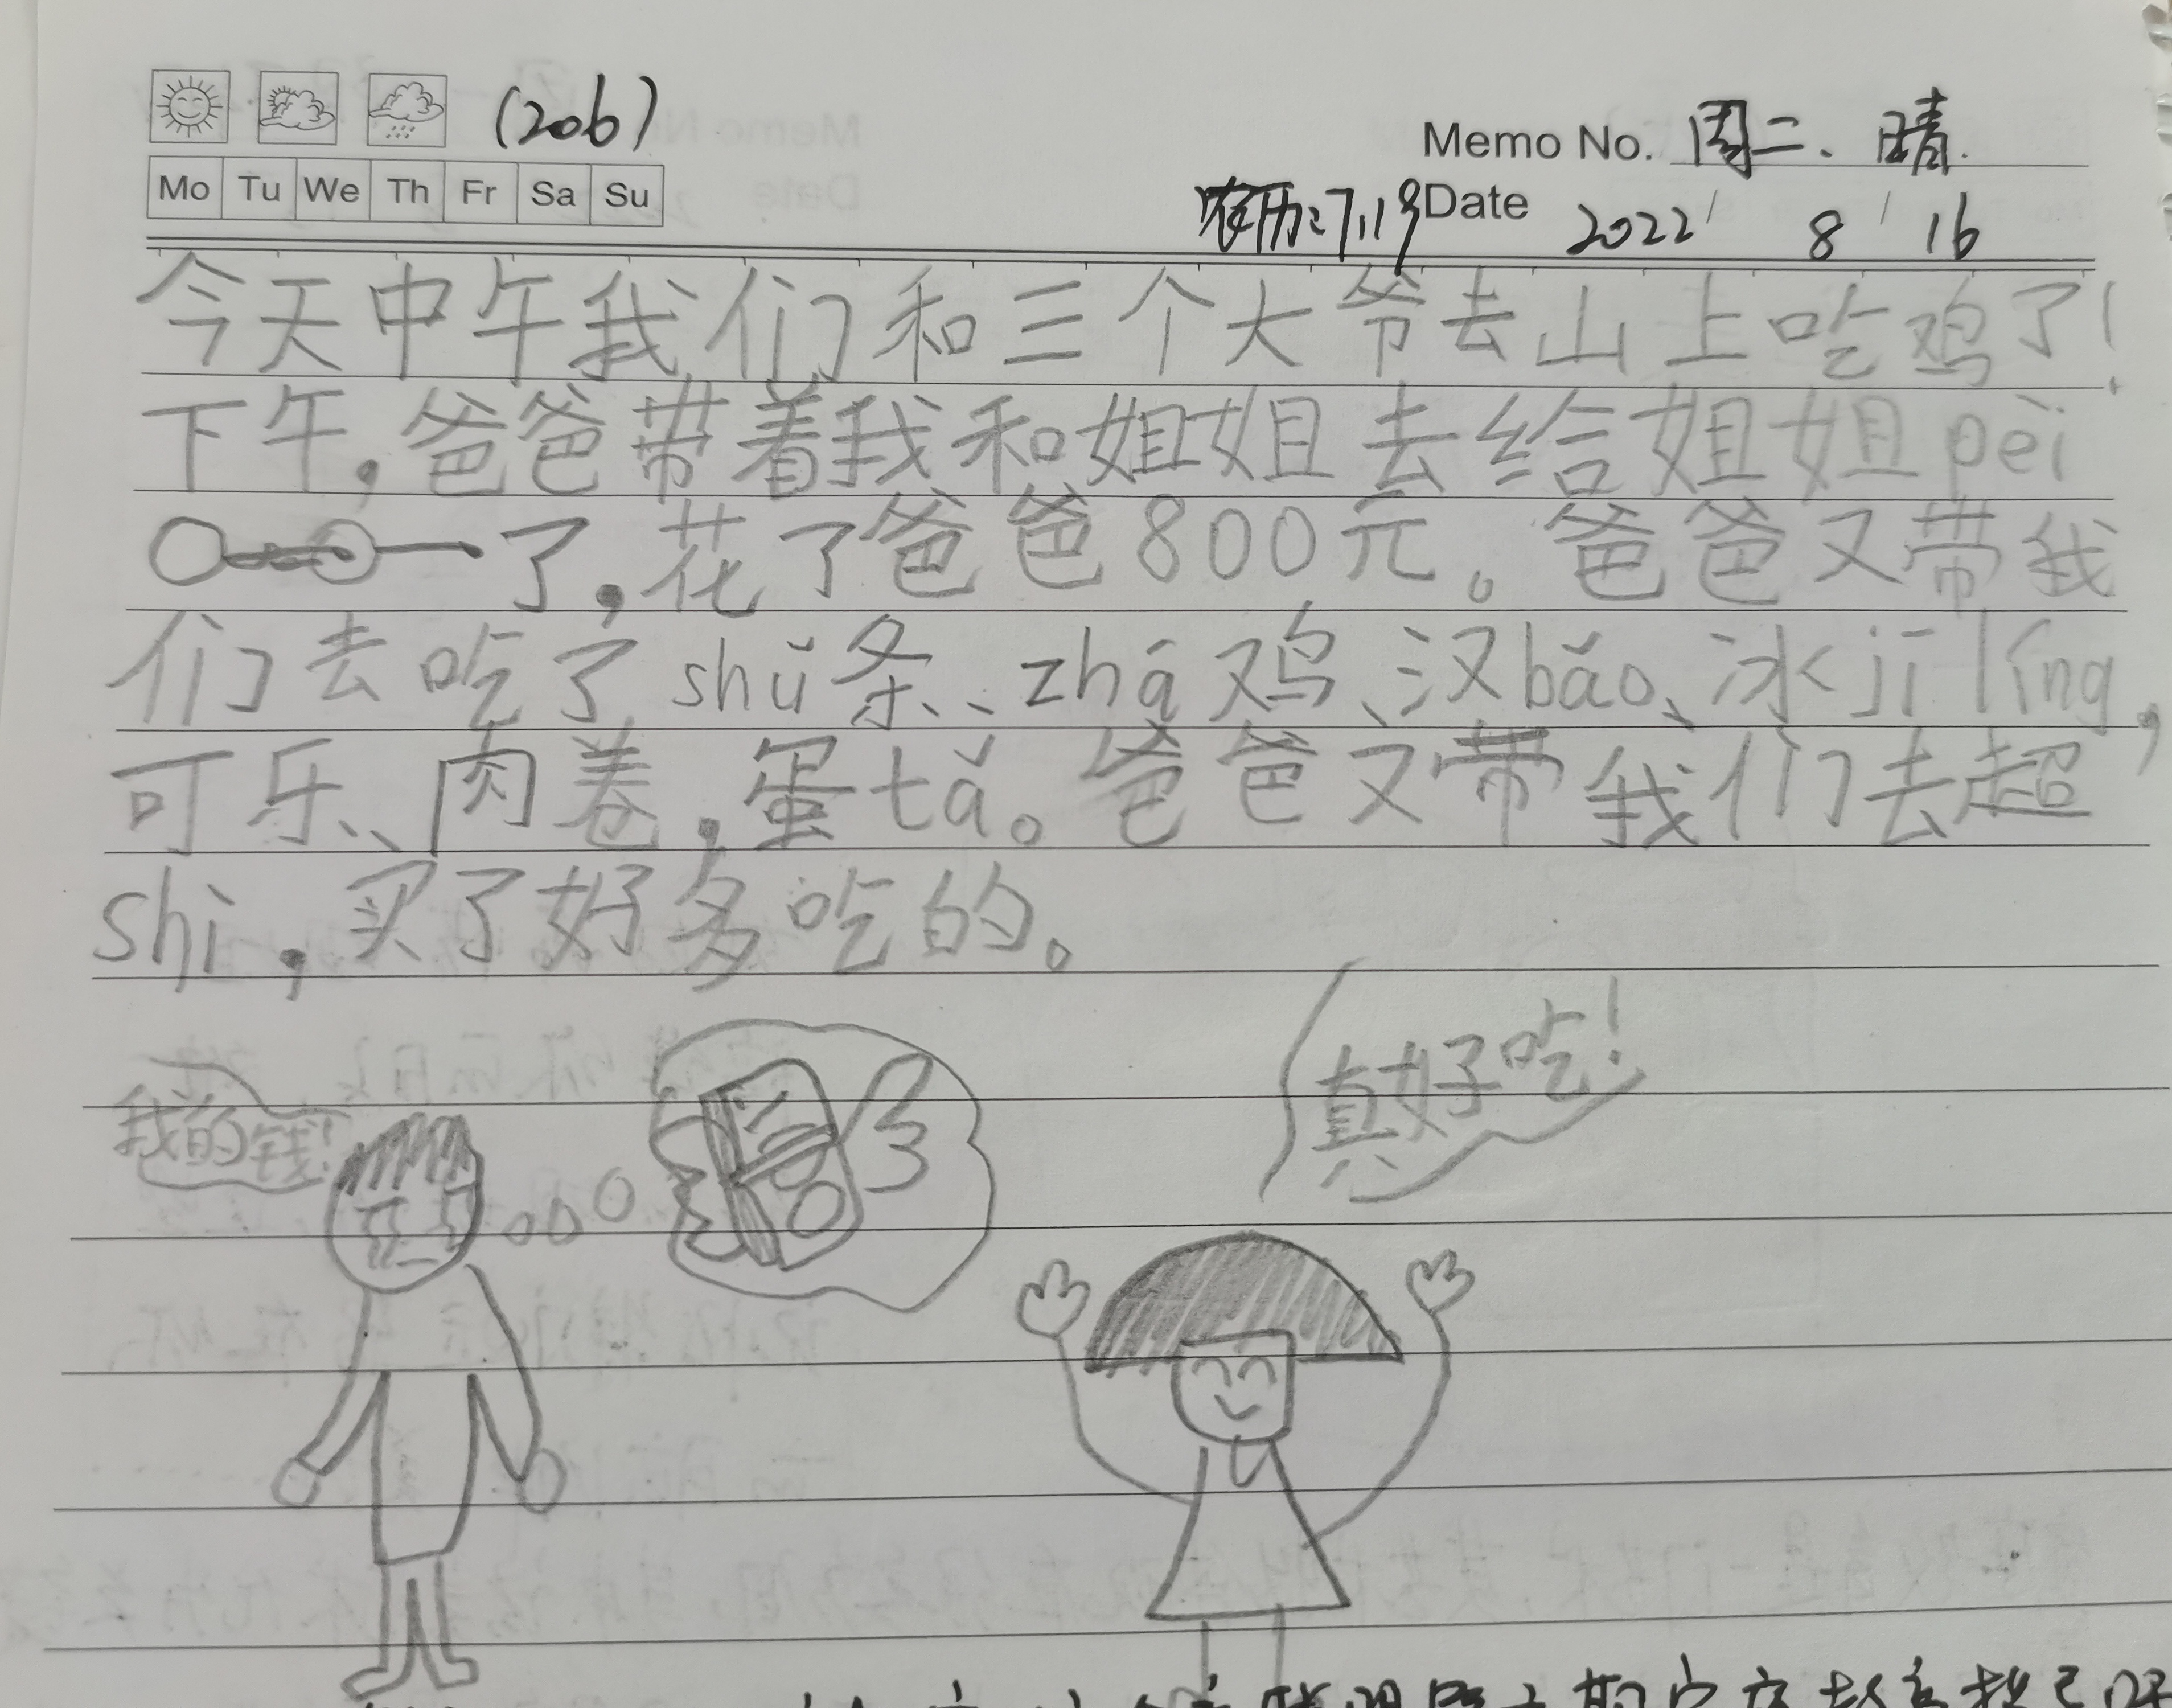 (206)
Memo No. 周二、晴.
Mo Tu We Th Fr Sa Su
农历:7.19 Date 2022/8/16
今天中午我们和三个大爷去山上吃鸡了!
下午,爸爸带着我和姐姐去给姐姐pèi
了,花了爸爸800元。爸爸又带我
们去吃了shǔ条、zhá鸡、汉bǎo、冰jī líng,
可乐、肉卷,蛋tǎ。爸爸又带我们去超
shì,买了好多吃的。
真好吃!
我的钱!